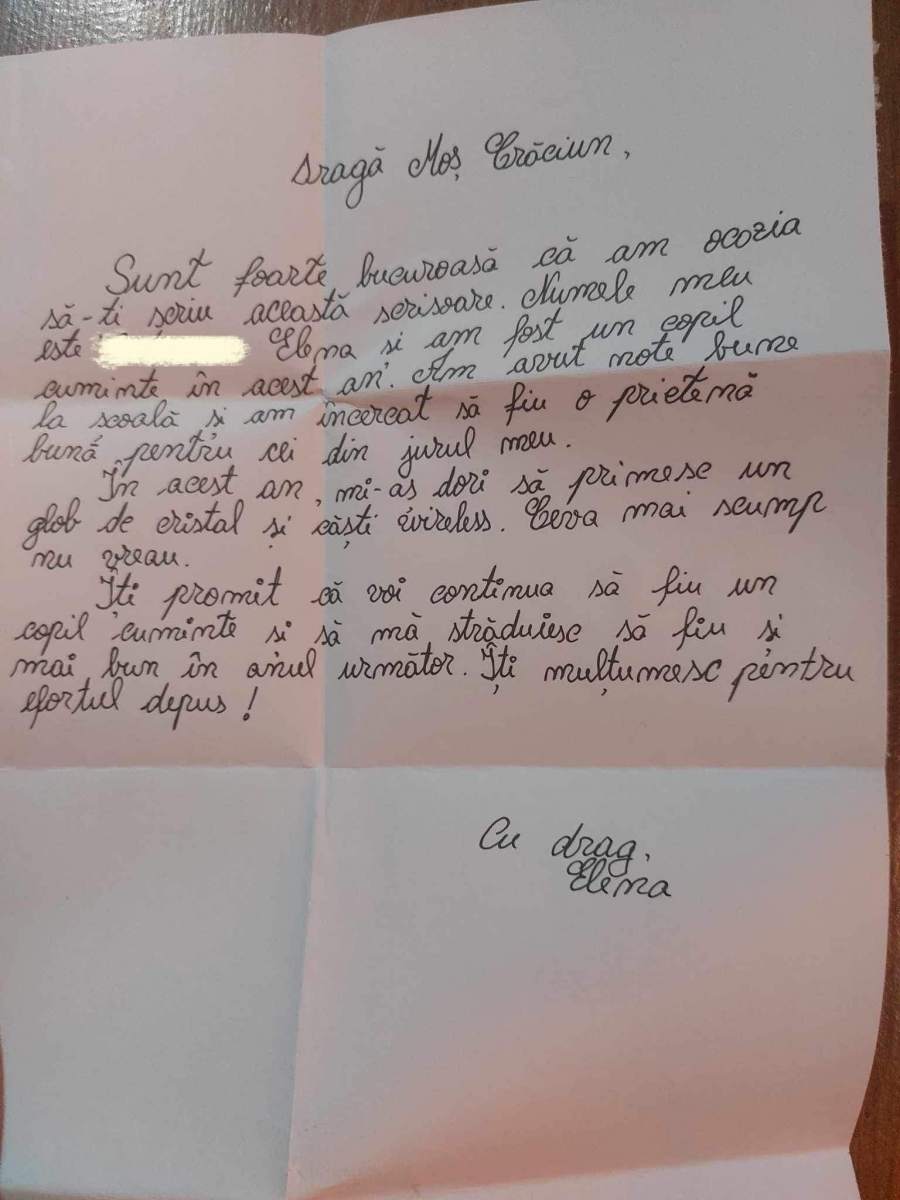 Dragă Moș Crăciun,
Sunt foarte bucuroasă că am ocozia
să-ti scriu această scrisoare. Numele meu
este Elena si am fost un copil
cuminte în acest an. Am avut note bune
la scoală si am încercat să fiu o prietenă
bună pentru cei din jurul meu.
În acest an, mi-as dori să primesc un
glob de cristal și căști wireless. Ceva mai scump
nu vreau.
Iti promit că voi continua să fiu un
copil cuminte si să mă străduiesc să fiu si
mai bun în anul următor. Iți mulțumesc pentru
efortul depus!
Cu drag,
Elena